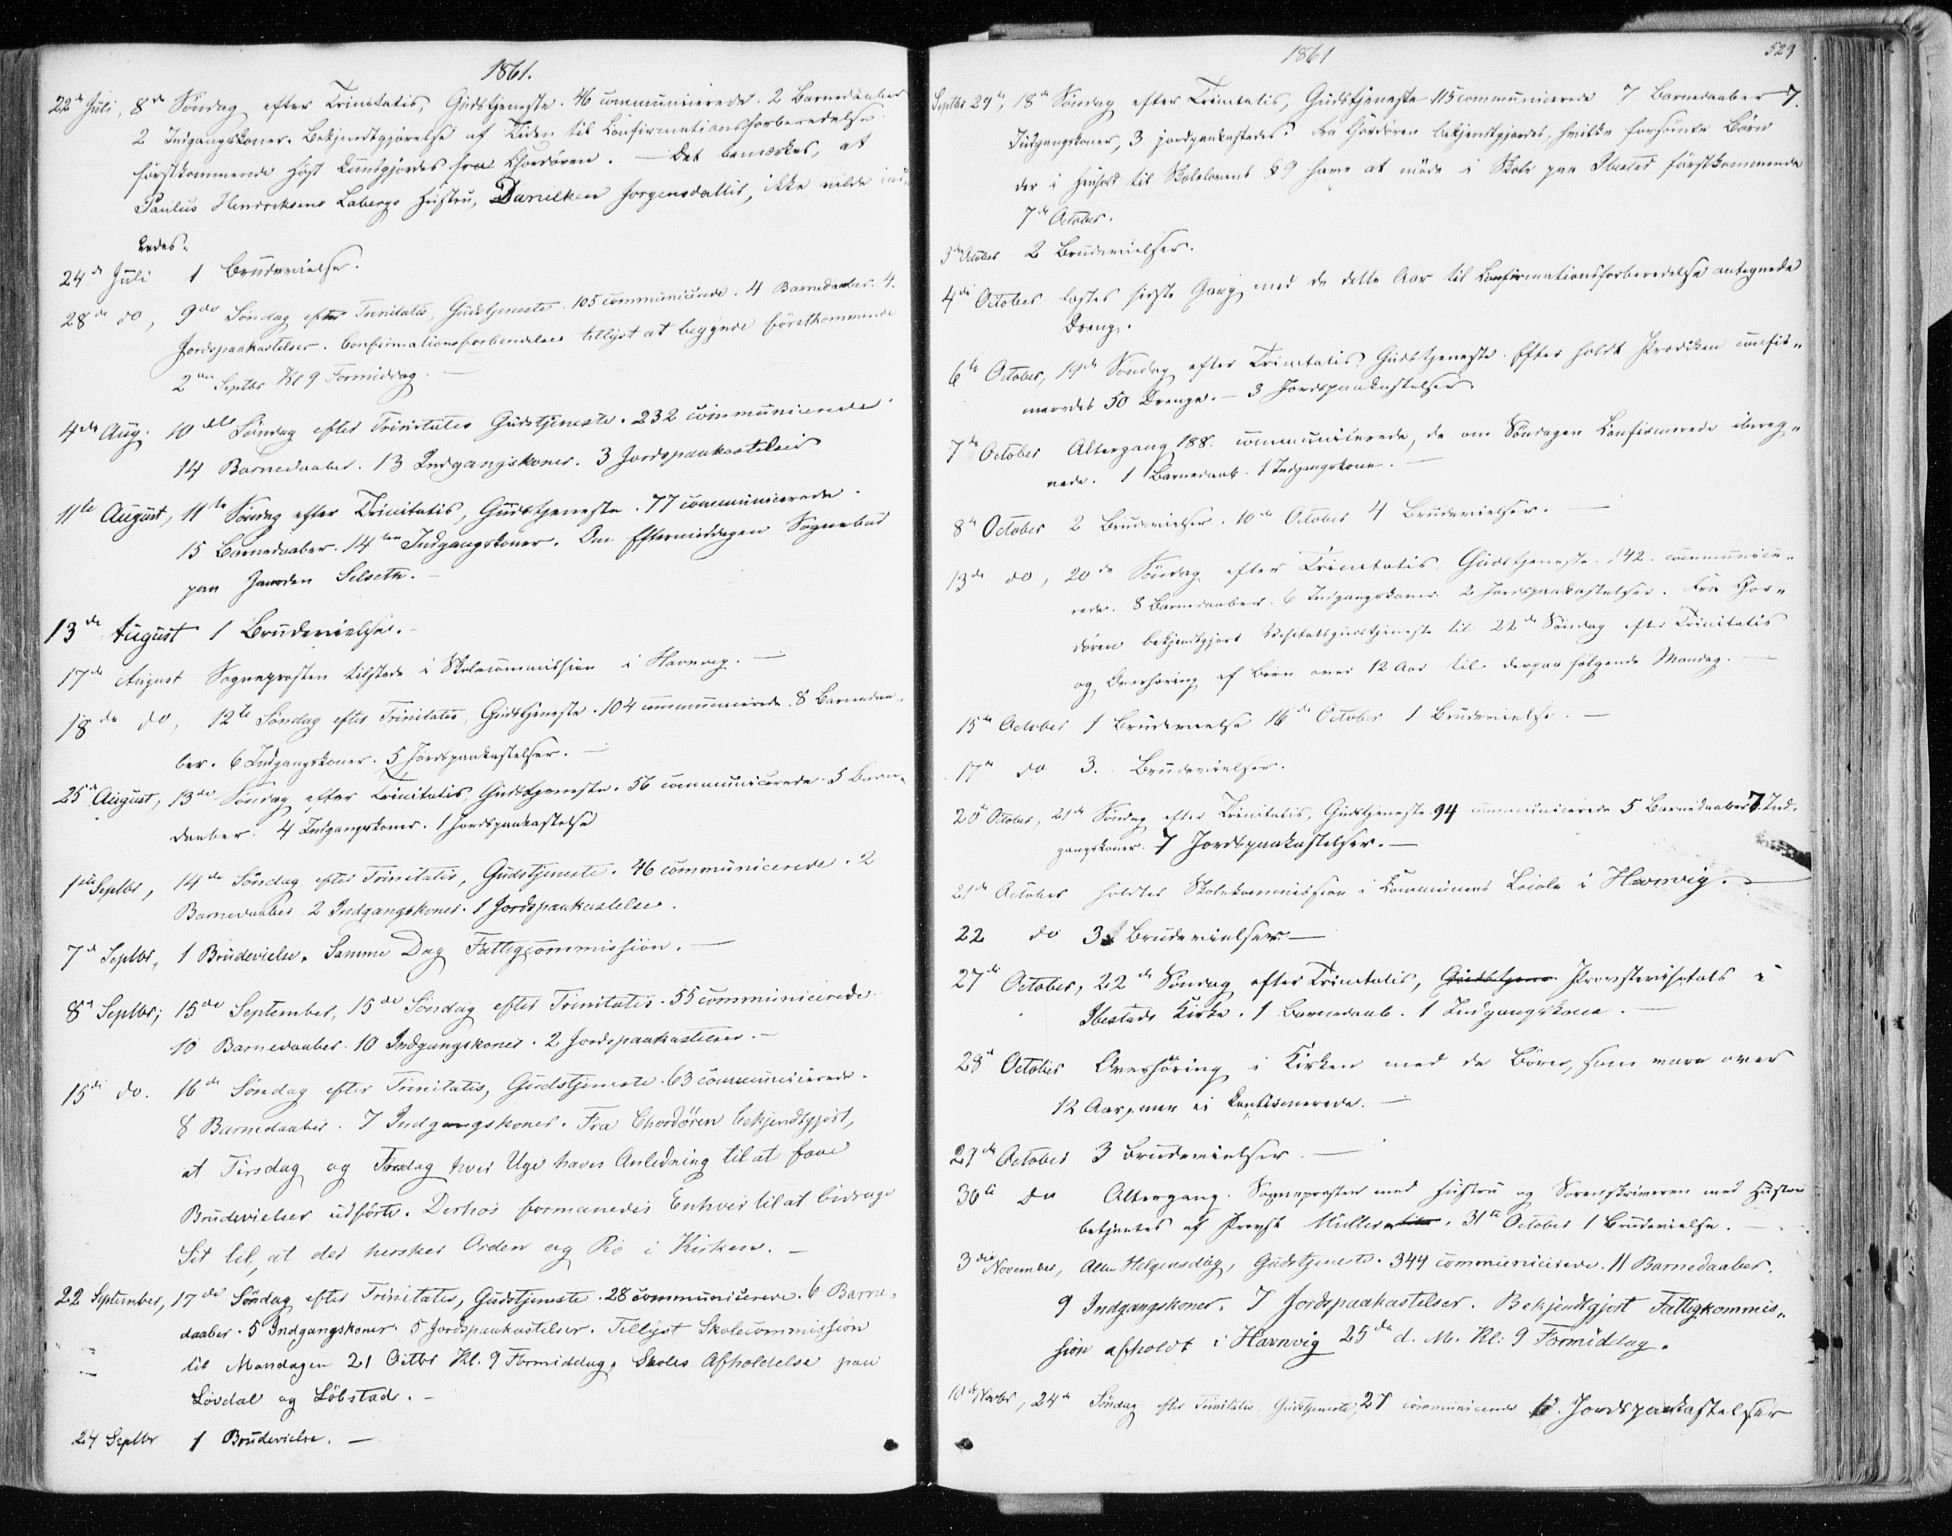 1861.
22de Juli, 8de Söndag efter Trinitatis, Gudstjeneste. 46 communicerede. 2 Barnedaaber
2 Indgangskoner. Bekjendtgjörelse af Tiden til Confirmationsforberedelse
förstkommende Höst kundgjordes fra Chordören. — Det bemærkes, at
Paulus Henriksens Labergs Hustru, Danilken Jorgensdatter, ikke vilde ind-
ledes.
24de Juli 1 Brudevielse.
28de do, 9de Söndag efter Trinitatis, Gudstjeneste. 105 communicerede. 4 Barnedaaber. 4.
Jordspaakastelser. Confirmationsforberedelsen tillyst at begynde förstkommende
2den Septbr Kl 9 Formiddag. —
4de Aug. 10de Söndag efter Trinitatis Gudstjeneste. 232 communicerede.
14 Barnedaaber. 13 Indgangskoner. 3 Jordspaakastelser
11te August, 11te Söndag efter Trinitatis, Gudstjeneste. 77 communicerede.
15 Barnedaaber. 14ten Indgangskoner. Om Eftermiddagen Sognebud
paa Gaarden Selseth. —
13de August 1 Brudevielse. —
17de August Sogneprosten tilstede i Skolecommission i Havnvig. —
18de do, 12te Söndag efter Trinitatis, Gudstjeneste. 104 communicerede. 8 Barnedaa-
ber. 6 Indgangskoner. 5 Jordspaakastelser. —
25de August, 13de Söndag efter Trinitatis, Gudstjeneste. 56 communicerede. 5 Barne-
daaber. 4 Indgangskoner. 1 Jordspaakastelse
1ste Septbr, 14de Söndag efter Trinitatis, Gudstjeneste. 46 communicerede. 2
Barnedaaber 2 Indgangskoner. 1 Jordspaakastelse.
7de Septbr, 1 Brudevielse. Samme Dag Fattigcommission. —
8de Septbr; 15de September, 15de Söndag efter Trinitatis. 55 communicerede.
10 Barnedaaber. 10 Indgangskoner. 2 Jordspaakastelser. —
15de do. 16de Söndag efter Trinitatis, Gudstjeneste. 63 communicerede.
8 Barnedaaber. 7 Indgangskoner. Fra Chordören bekjendtgjort,
at Tirsdag og Fredag hver Uge haves Anledning til at faae
Brudevielser udförte. Derhos formanedes Enhver til at bidrage
Sit til, at der hersker Orden og Ro i Kirken. —
22 September, 17de Söndag efter Trinitatis, Gudstjeneste. 28 communicerede. 6 Barne-
daaber. 5 Indgangskoner. 5 Jordspaakastelser. Tillyst Skolecommission
til Mandagen 21 Octbr Kl. 9 Formiddag. Skoles Afholdelse paa
Lövdal og Löbstad. —
24 Septbr 1 Brudevielse. —
1861
529
Septbr 29de, 18de Söndag efter Trinitatis, Gudstjeneste 115 communicerede 7 Barnedaaber 7.
Indgangskoner, 3 jordpaakastedes. Fra Chordören bekjendtgjordes, hvilke forsömte Börn
der i Henhold til Skolelovens § 9 have at möde i Skole paa Ibestad förstkommende
7de October.
3de October 2 Brudevielser.
4de October læstes sidste Gang med de dette Aar til Confirmationsforberedelse antegnede
Dreng.
6te October, 19de Söndag efter Trinitatis Gudstjeneste. Efter holdt Prædiken confir-
meredes 50 Drenge. — 3 Jordspaakastelser
7de October Altergang 188. communicerede, de om Söndagen Confirmerede ibereg-
nede. 1 Barnedaab. 1 Indgangskone. —
8de October 2 Brudevielser. 10de October 4 Brudevielser. —
13de do, 20de Söndag efter Trinitatis. Gudstjeneste. 142. communice-
rede. 8 Barnedaaber. 6 Indgangskoner. 2 Jordspaakastelser. Fra Chor-
dören bekjendtgjort Visitatsgudstjeneste til 22de Söndag efter Trinitatis
og Overhöring af Börn over 12 Aar til derpaa fölgende Mandag. —
15de October 1 Brudevielse 16de October 1 Brudevielse. —
17de do 3. Brudevielser.
20de October, 21de Söndag efter Trinitatis, Gudstjeneste 94 communicerede 5 Barnedaaber 7 Ind-
gangskoner. 7 Jordspaakastelser. —
21de October holdtes Skolekommission i Kommunens Locale i Havnvig. —
22 do 3 Brudevielser —
27de October, 22de Söndag efter Trinitatis, Provstevisitats i
Ibestads Kirke. 1 Barnedaab. 1 Indgangskone. —
28de October Overhöring i Kirken med de Börn, som vare over
12 Aar, men ei konfirmerede. —
29de October 3 Brudevielser. —
30te do Altergang. Sogneprosten med Hustru og Sorenskriveren med Hustru
betjentes af Provst Müller. 31te October 1 Brudevielse. —
3die November, Alle Helgensdag, Gudstjeneste. 344 communicerede. 11 Barnedaaber.
9 Indgangskoner. 7 Jordspaakastelser. Bekjendtgjort Fattigkommis-
sion afholdt i Havnvig 25de d. M. Kl: 9 Formiddag.
10de Novbr, 24de Söndag efter Trinitatis Gudstjeneste, 27 communicerede Jordspaakastelser